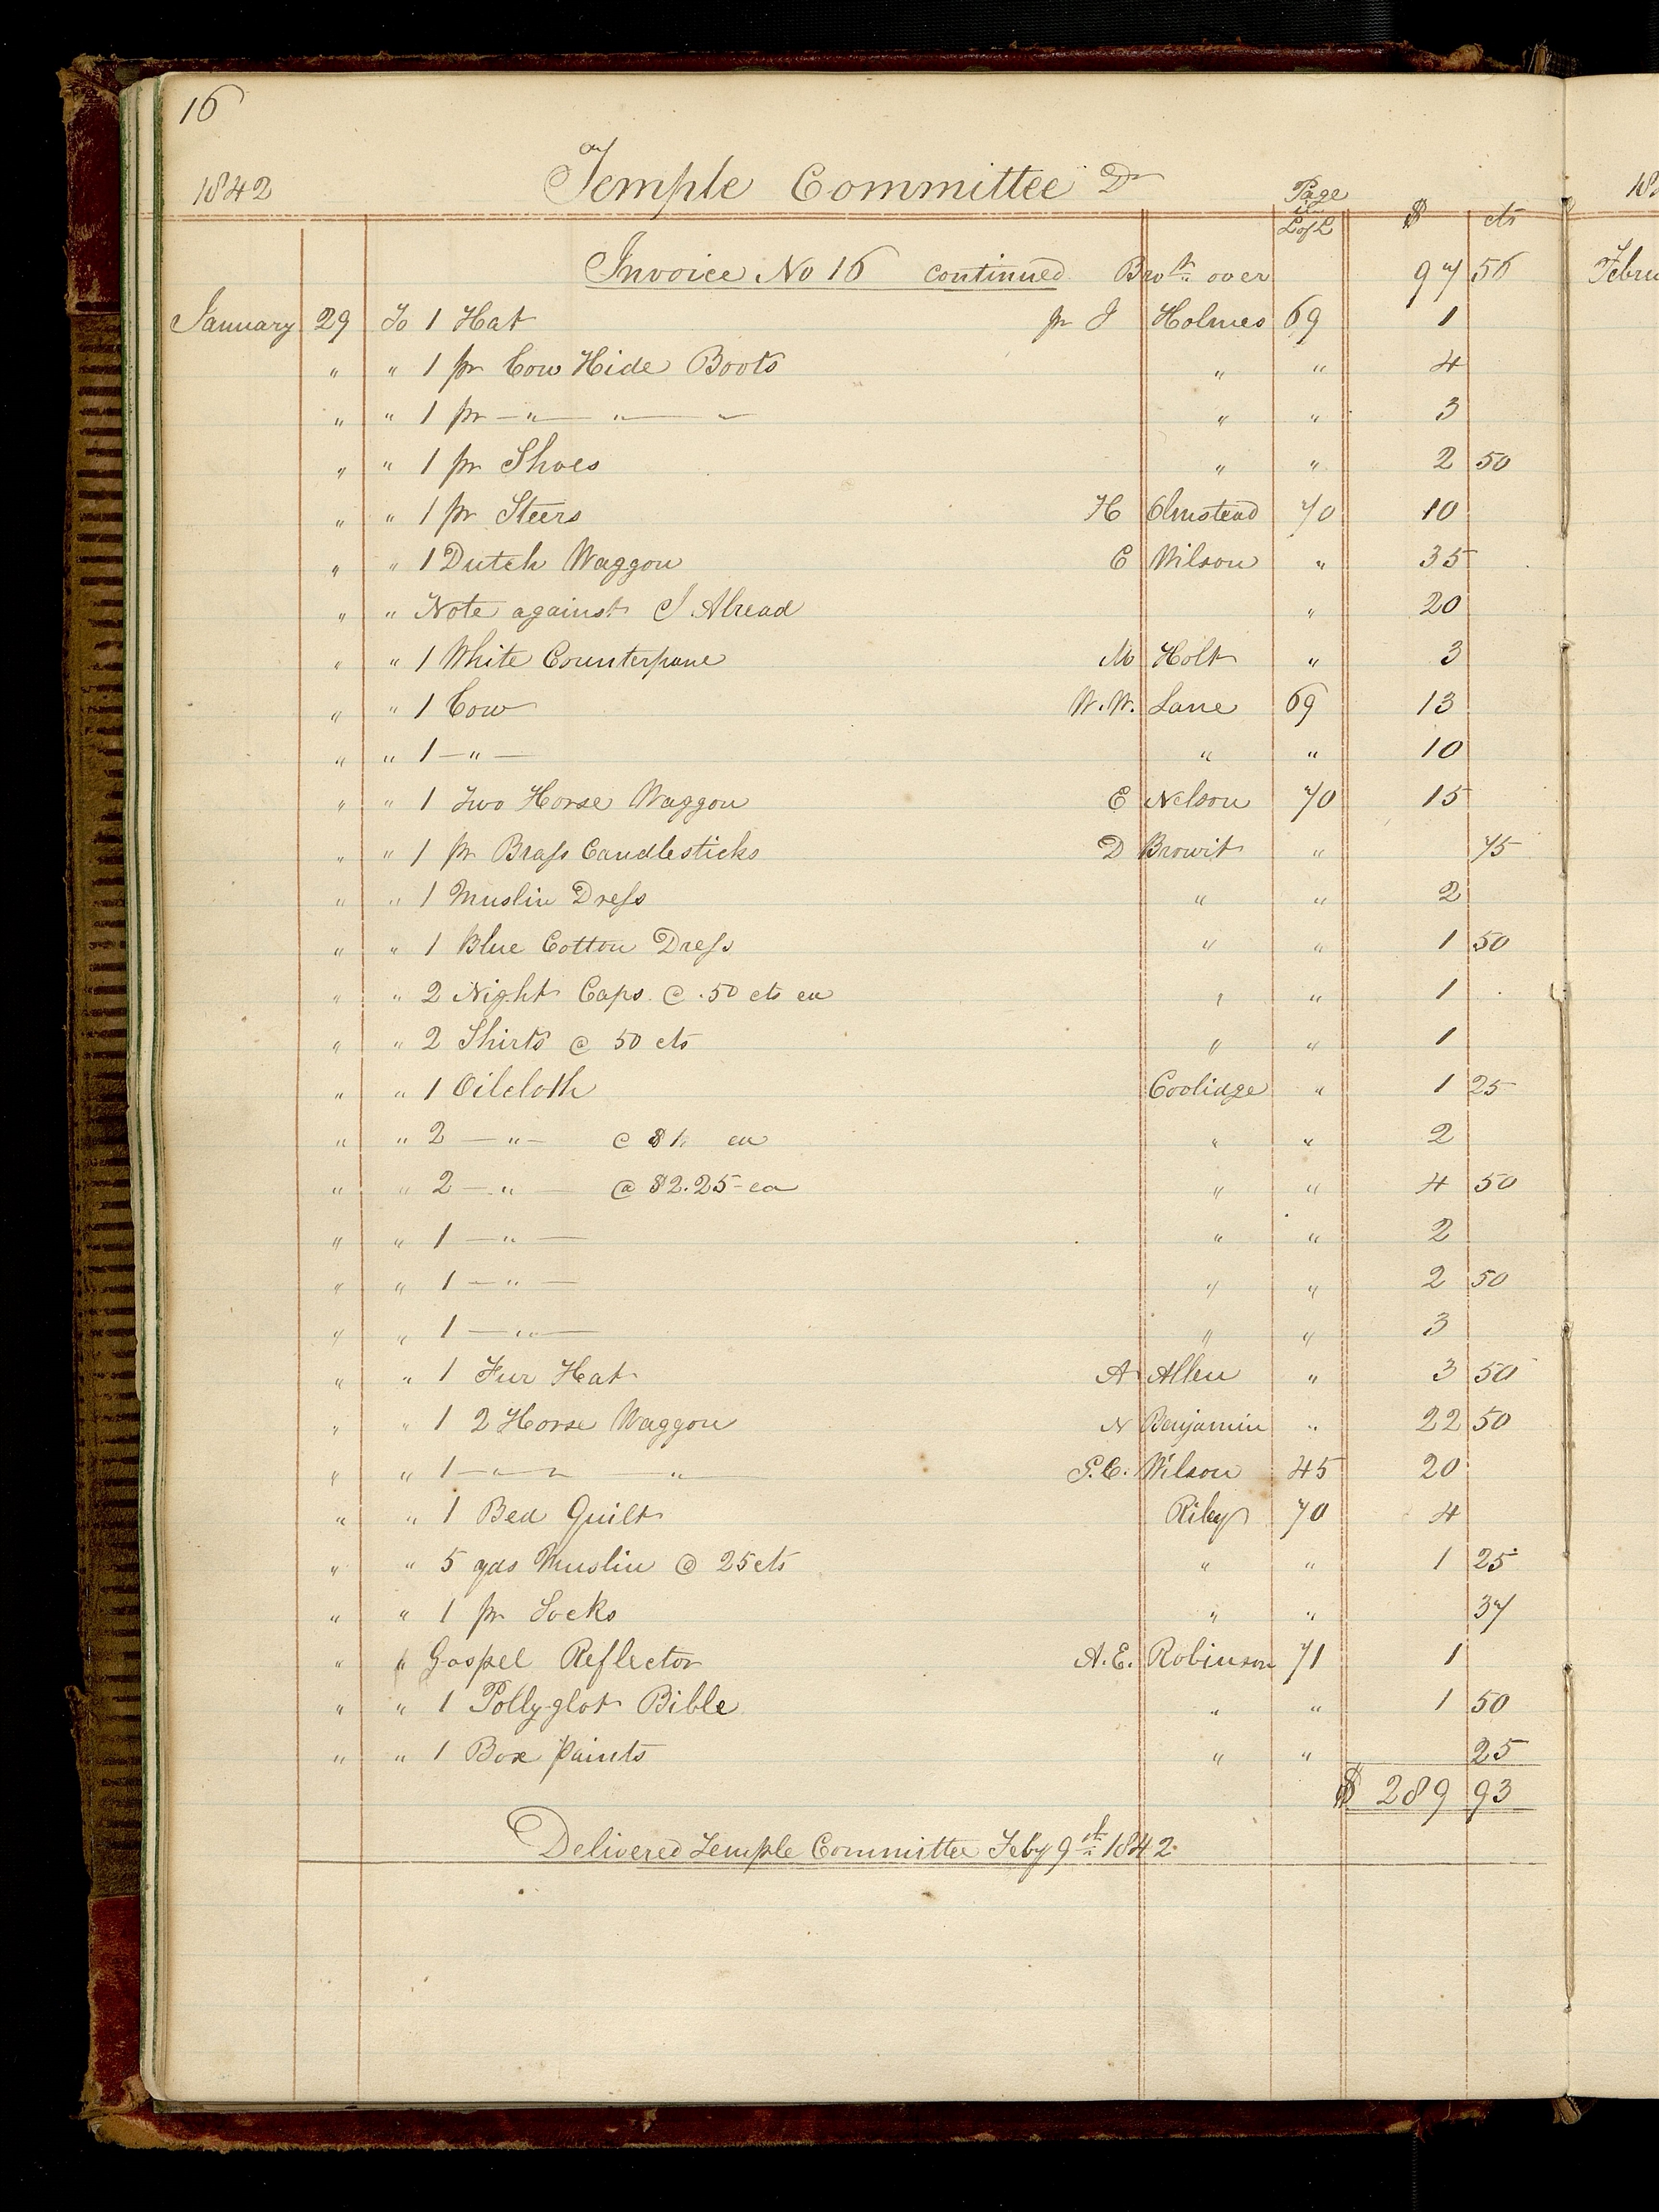 16
1842 Temple Committee Dr Page in L of L $ cts
Invoice No 16 continued Brot over 97 56
January 29 To 1 Hat pr J Holmes 69 1
" " 1 pr Cow Hide Boots " " 4
" " 1 pr — " — " — " " " 3
" " 1 pr Shoes " " 2 50
" " 1 pr Steers H Olmstead 70 10
" " 1 Dutch Waggon C Wilson " 35
" " Note against J Alread " 20
" " 1 White Counterpane M Holt " 3
" " 1 Cow W. W. Lane 69 13
" " 1 — " — " " 10
" " 1 Two Horse Waggon E Nelson 70 15
" " 1 pr Brass Candlesticks D Browit " 75
" " 1 Muslin Dress " " 2
" " 1 Blue Cotton Dress " " 1 50
" " 2 Night Caps @ .50 cts ea " " 1
" " 2 Shirts @ 50 cts " " 1
" " 1 Oilcloth Coolidge " 1 25
" " 2 — " — @ $1 ea " " 2
" " 2 — " — @ $2.25 ea " " 4 50
" " 1 — " — " " 2
" " 1 — " — " " 2 50
" " 1 — " — " " 3
" " 1 Fur Hat A Allen " 3 50
" " 1 2 Horse Waggon N Benjamin " 22 50
" " 1 — " — " — Wilson 45 20
" " 1 Bed Quilt Riley 70 4
" " 5 yds Muslin @ 25 cts " " 1 25
" " 1 pr Socks " " 37
" " Gospel Reflector A. E. Robinson 71 1
" " 1 Pollyglot Bible " " 1 50
" " 1 Box Paints " " 25
$ 289 93
Delivered Temple Committee Feby 9th 1842
18
Febru